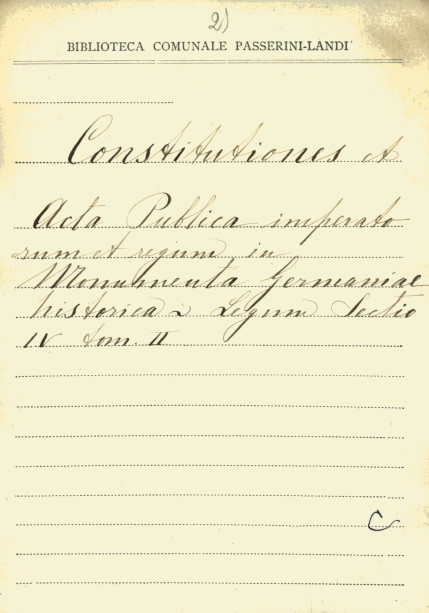 2)
BIBLIOTECA COMUNALE PASSERINI-LANDI
Constitutiones et
Acta Publica imperato
rum et regum in
Monumenta Germaniae
historica ~ Legum Sectio
IV tom. II
C